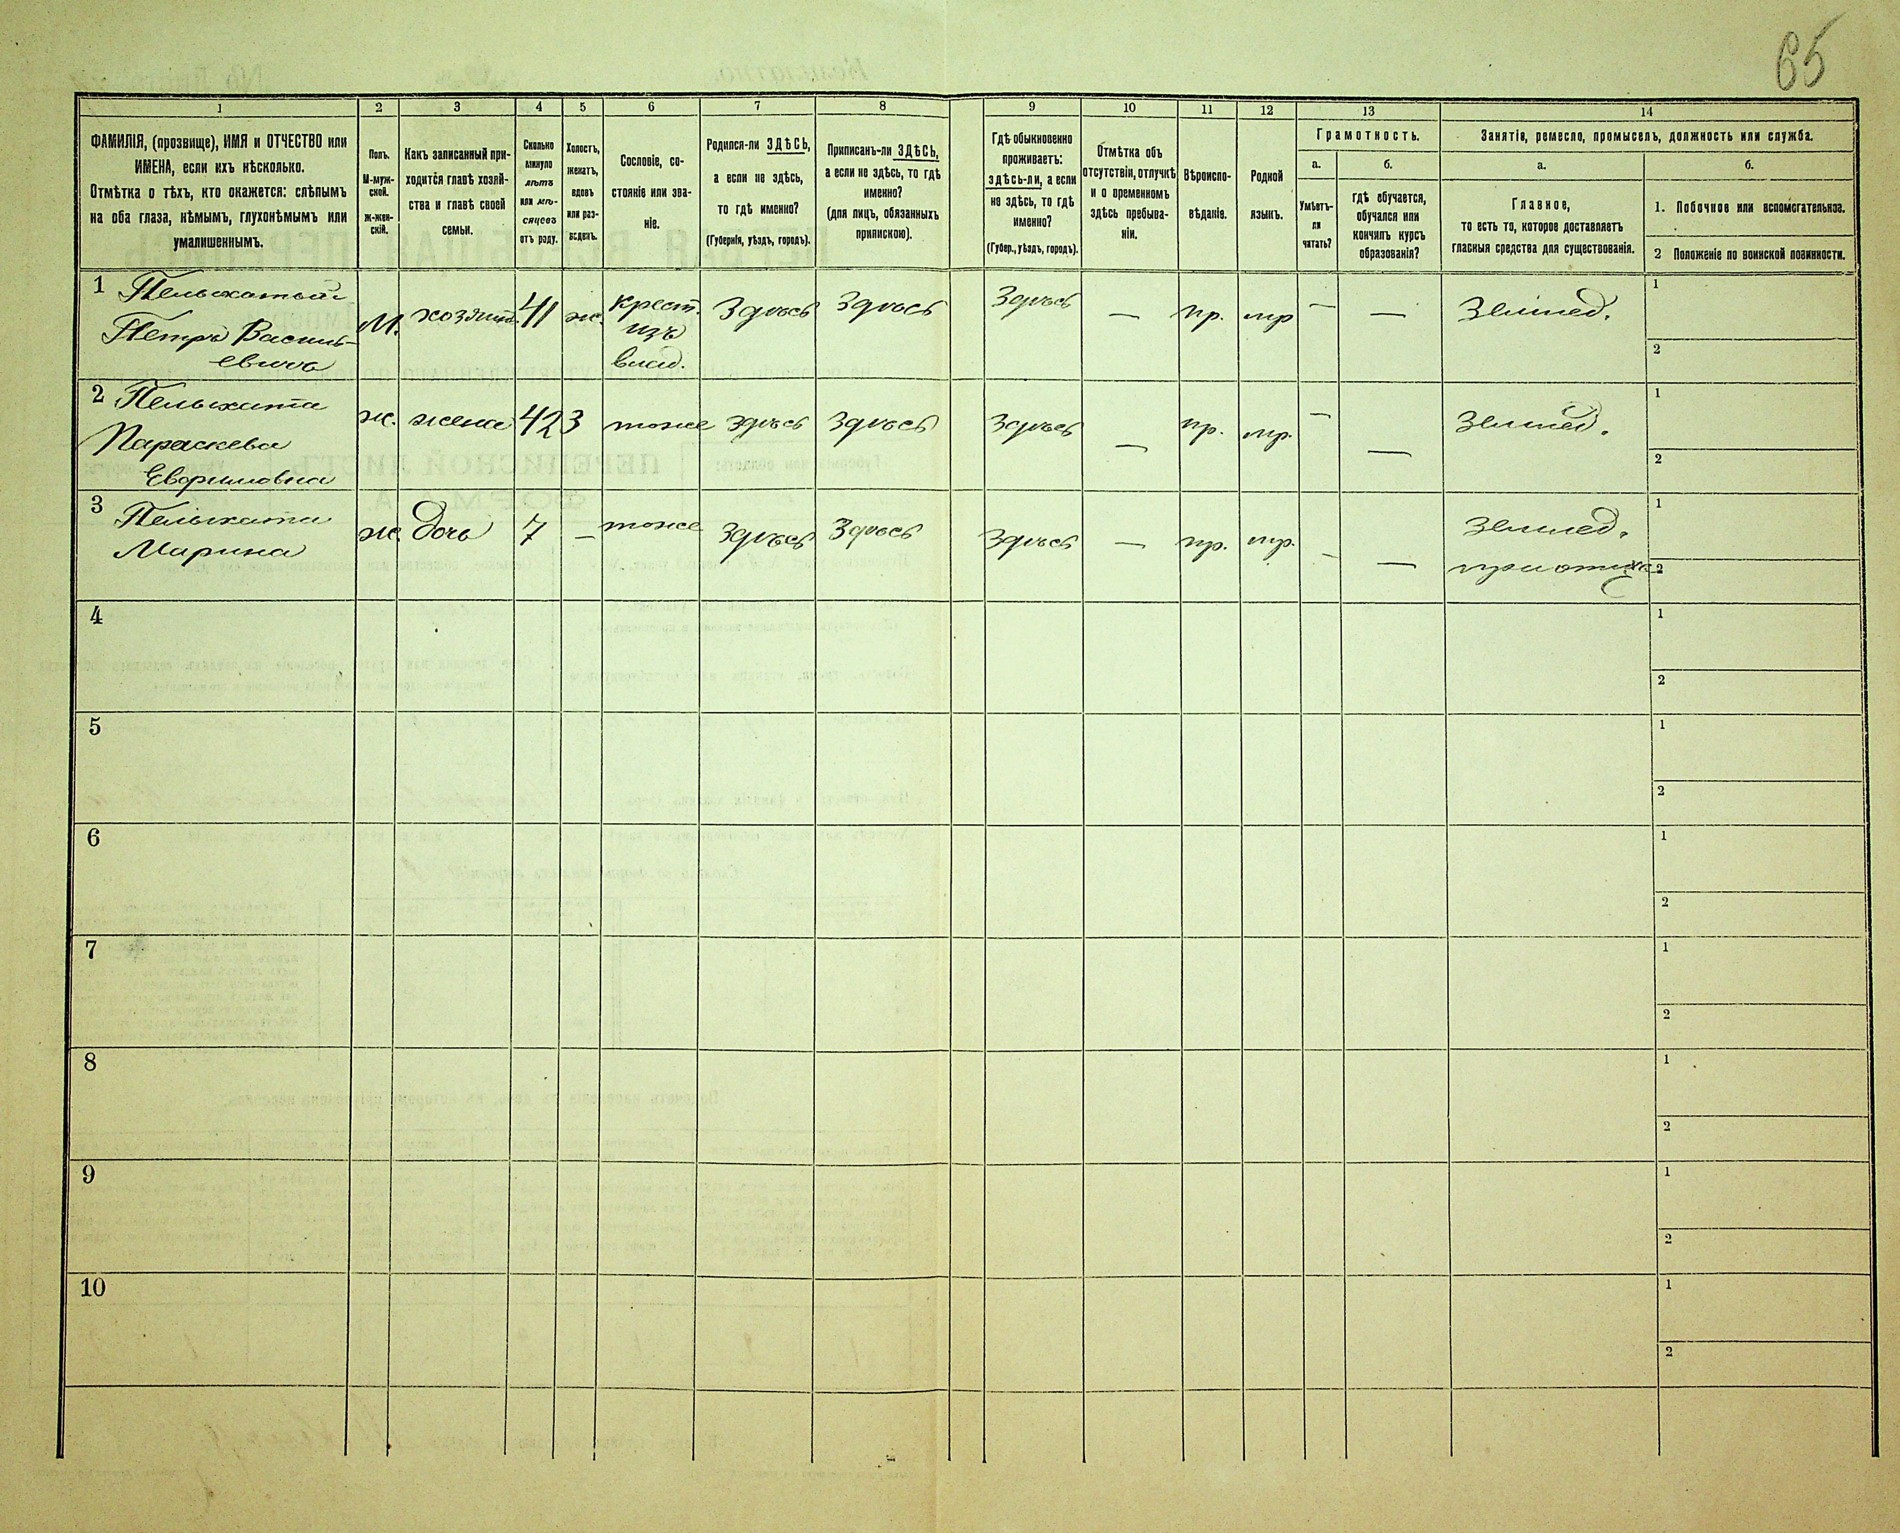 65
1 2 3 4 5 6 7 8 9 10 11 12 13 14
ФАМИЛІЯ, (прозвище), ИМЯ и ОТЧЕСТВО или
ИМЕНА, если ихъ нѣсколько.
Отмѣтка о тѣхъ, кто окажется: слѣпымъ
на оба глаза, нѣмымъ, глухонѣмымъ или
умалишеннымъ.
Полъ.
М-муж-
ской.
Ж-жен-
скій.
Какъ записанный при-
ходится главѣ хозяй-
ства и главѣ своей
семьи.
Сколько
минуло
лѣтъ
или мѣ-
сяцевъ
отъ роду.
Холостъ,
женатъ,
вдовъ
или раз-
веденъ.
Сословіе, со-
стояніе или зва-
ніе.
Родился-ли ЗДѢСЬ,
а если не здѣсь,
то гдѣ именно?
(Губернія, уѣздъ, городъ).
Приписанъ-ли ЗДѢСЬ,
а если не здѣсь, то гдѣ
именно?
(для лицъ, обязанныхъ
припискою).
Гдѣ обыкновенно
проживаетъ:
здѣсь-ли, а если
не здѣсь, то гдѣ
именно?
(Губер., уѣздъ, городъ).
Отмѣтка объ
отсутствіи, отлучкѣ
и о временномъ
здѣсь пребыва-
ніи.
Вѣроиспо-
вѣданіе.
Родной
языкъ.
Грамотность.
а.
Умѣетъ-
ли
читать?
б.
гдѣ обучается,
обучался или
кончилъ курсъ
образованія?
Занятіе, ремесло, промыселъ, должность или служба.
а.
Главное,
то есть то, которое доставляетъ
главныя средства для существованія.
б.
1. Побочное или вспомогательное.
2 Положеніе по воинской повинности.
1 Пелыхатый
Петръ Василь-
евичъ
М. хозяинъ 41 ж. крест.
изъ
влад.
Здѣсь Здѣсь Здѣсь — пр. мр — — Землед.
1
2
2 Пелыхата
Параскева
Евфимовна
ж. жена 42 З тоже здѣсь здѣсь здѣсь — пр. мр. — — Землед.
1
2
3 Пелыхата
Марина
ж. дочь 7 — тоже Здѣсь Здѣсь Здѣсь — пр. мр. — — Землед.
1
2
4
1
2
5
1
2
6
1
2
7
1
2
8
1
2
9
1
2
10
1
2